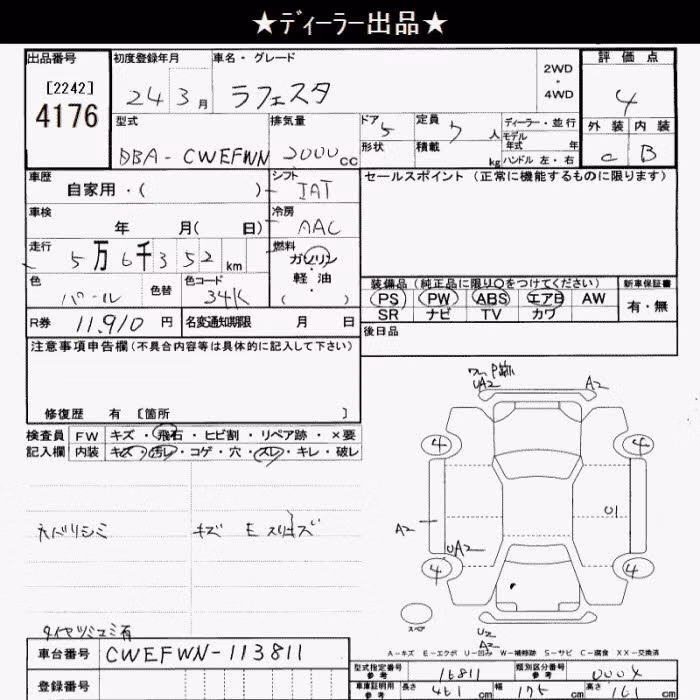 ★ディーラー出品★
出品番号 初度登録年月 車名・グレード 2WD・4WD 評価点
[2242] 4176 24 3月 ラフェスタ 4
型式 排気量 ドア 5 定員 7人 ディーラー・並行 外装 内装
DBA-CWEFWN 2000cc 形状 積載 kg モデル年式 年 ハンドル 左・右 C B
車歴 自家用・( ) シフト IAT セールスポイント (正常に機能するものに限ります)
車検 年 月( 日) 冷房 AAC
走行 5万6千352km 燃料 ガソリン
軽・油
( )
色 パール 色替 色コード 34K 装備品 (純正品に限り○をつけてください) 新車保証書
PS PW ABS エアB AW 有・無
SR ナビ TV カワ
R券 11,910円 名変通知期限 月 日 後日品
注意事項申告欄 (不具合内容等は具体的に記入して下さい)
修復歴 有 [箇所 ]
検査員 FW キズ・飛石・ヒビ割・リペア跡・×要
記入欄 内装 キズ・汚レ・コゲ・穴・スレ・キレ・破レ
UA2 A2
4 4
U1
A2
UA2
4 4
キズ E
スペア
U2
A2
A-キズ E-エクボ U-凹み W-補修跡 S-サビ C-腐食 XX-交換済
車台番号 CWEFWN-113811
型式指定番号 参考 16811 類別区分番号 参考 0004
登録番号 車庫証明用 参考 長さ 461cm 幅 175cm 高さ 161cm